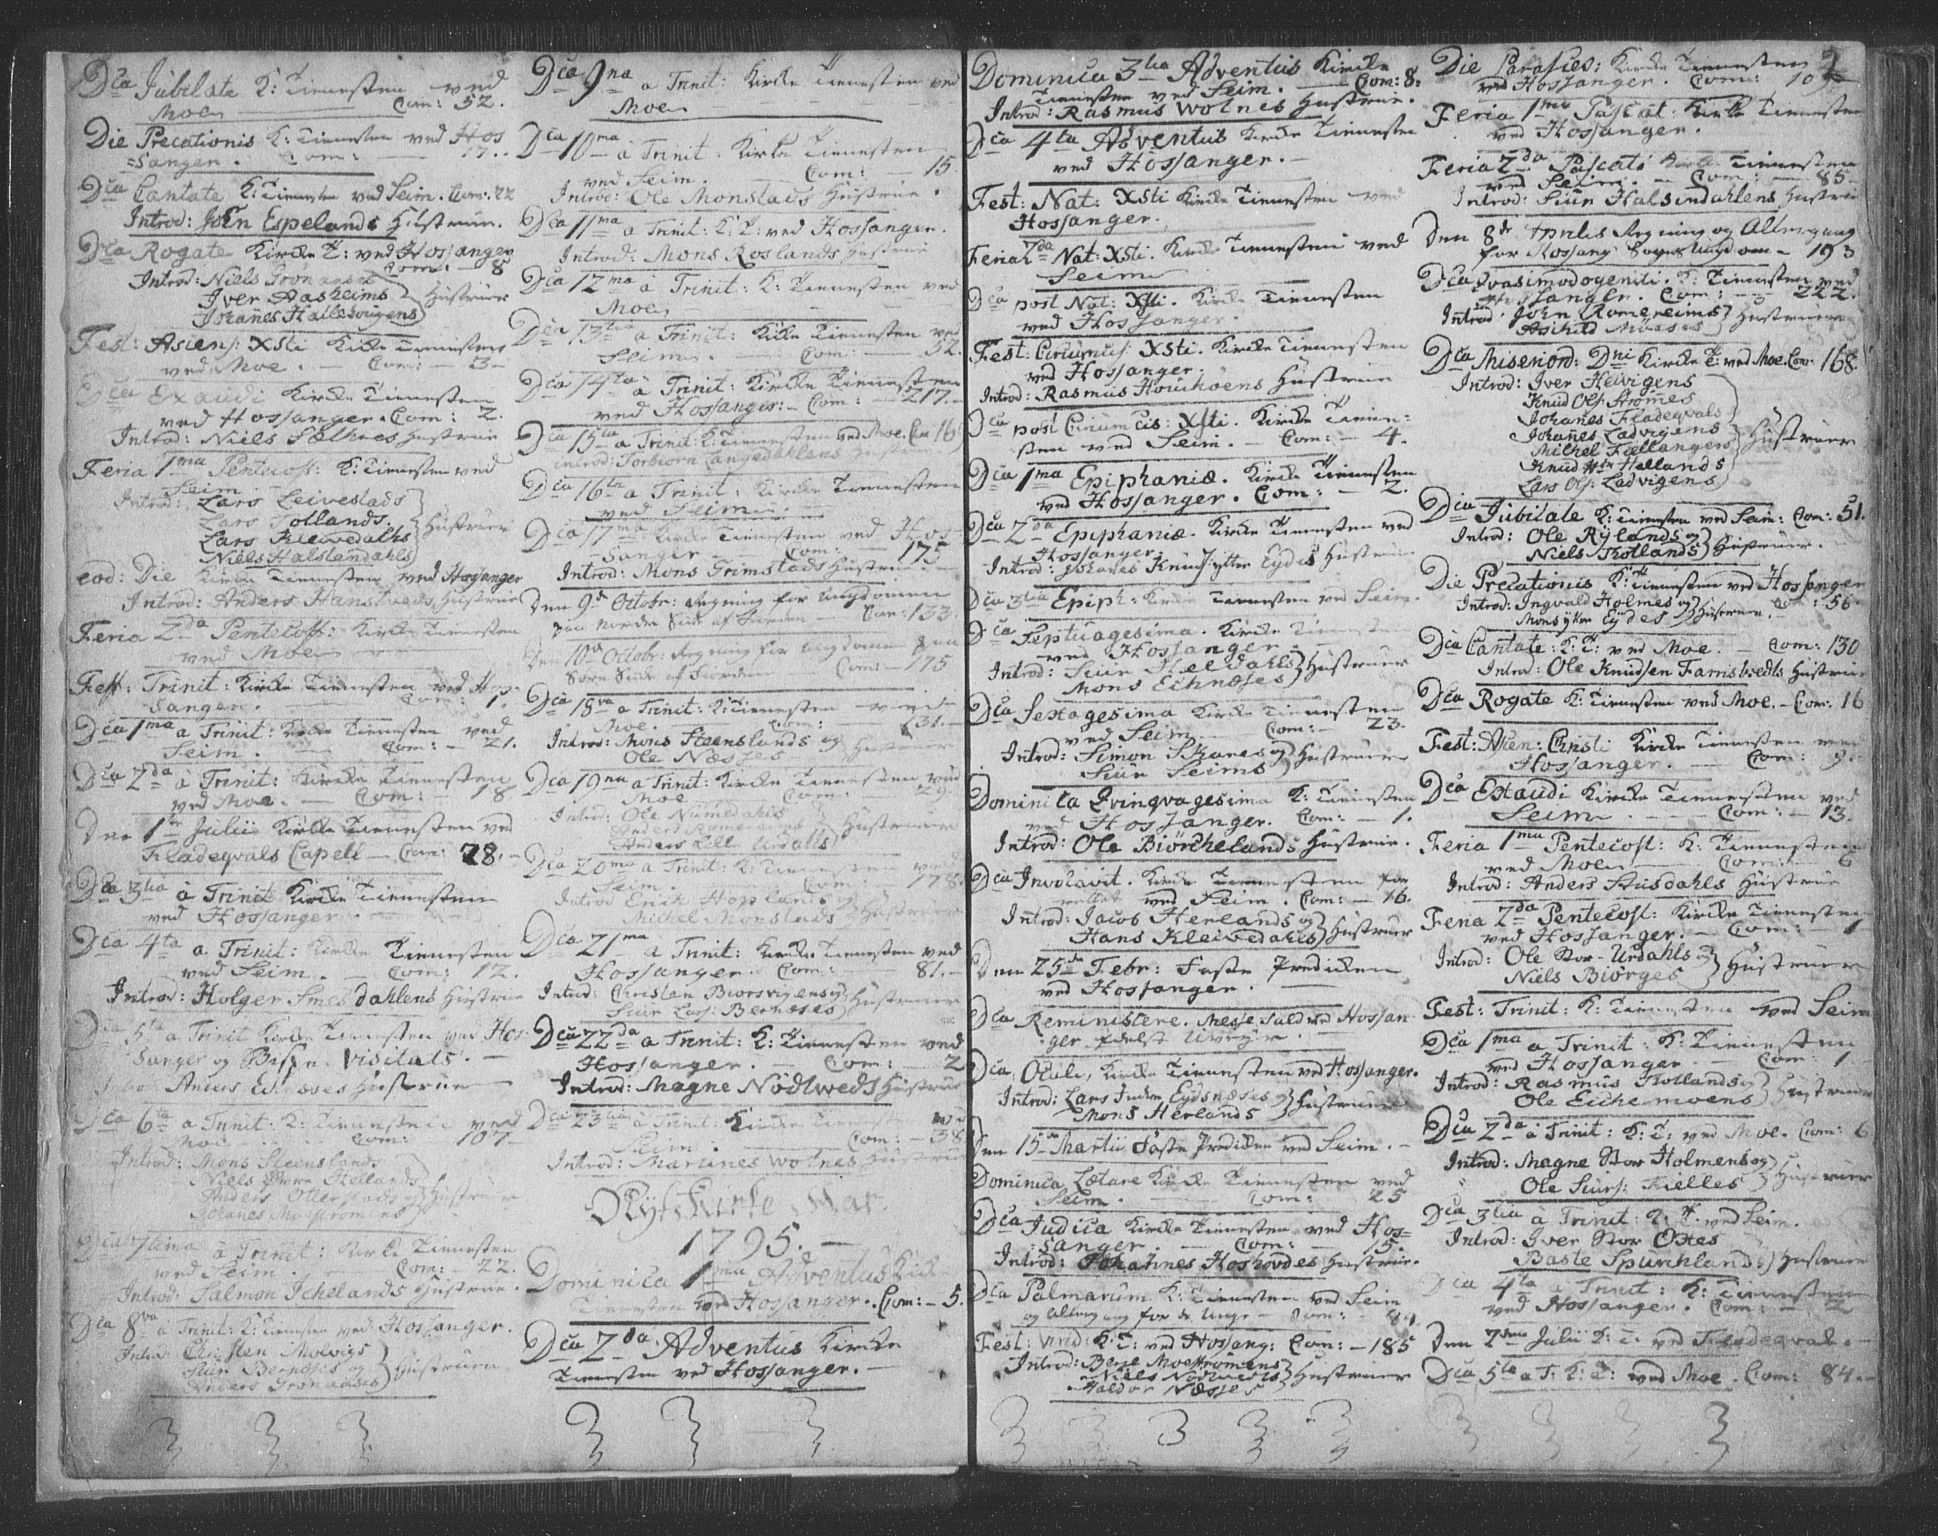 Dca Jubilate K: Tienesten ved
Moe. Com: 52.
Die Precationis K: Tienesten ved Hos
=sanger. Com:
Dca Cantate K: Tienesten ved Seim. Com: 22
Introd: John Espelands Hustrue.
Dca Rogate Kircke T: ved Hossanger
Com: 8
Introd: Niels
Iver Aasheims
Johanes Hallesougens } Hustruer
Fest: Asiens: Xsti Kircke Tienesten
ved Moe. Com: 3
Dca Exaudi Kircke Tienesten
ved Hossanger. Com: 2.
Introd: Niels Hustrue
Feria 1ma Pentecost: K: Tienesten ved
Seim
Introd: Lars Leivestads
Lars Tollands.
Lars Kleivedahls
Niels Halslendahls } Hustruer
eod: Die Kircke Tienesten ved Hossanger
Introd: Anders Hanstveds Hustrue
Feria 2da Pentecost: Kircke Tienesten
ved Moe
Fest: Trinit: Kircke Tienesten ved Hos-
sanger. Com: 1.
Dca 1ma a Trinit: Kircke Tienesten ved
Seim. Com: 21.
Dca 2da à Trinit: Kircke Tienesten
ved Moe. Com: 18
Den 1te Julii Kircke Tienesten ved
Fladeqvals Capell Com: 28.
Dca 3tia à Trinit Kircke Tienesten
ved Hossanger.
Dca 4ta a Trinit: Kircke Tienesten
ved Seim. Com: 12.
Introd: Holger Smesdahlens Hustrue
Dca 5ta a Trinit Kircke Tienesten ved Hos-
sanger og Bispe Visitats.
Introd: Hustrue
Dca 6ta a Trinit: K: Tienesten ved
Moe Com: 107
Introd: Mons Steenslands
Niels Store Hellands
Anders
Johanes Moestromens } Hustruer
Dca 7tima à Trinit: Kircke Tienesten
ved Seim. Com: 22.
Introd: Salmon Ichelands Hustrue.
Dca 8va à Trinit: K: Tienesten ved Hossanger.
Introd: Christen Molvigs
Siur Bernøses og
Anders } Hustruer
Dca 9na a Trinit: Kircke Tienesten ved
Moe
Dca 10ma à Trinit: Kircke Tienesten
ved Seim. Com: 15.
Introd: Ole Monstads Hustrue.
Dca 11ma a Trinit: K: T: ved Hossanger.
Introd: Mons Roslands Hustrue
Dca 12ma à Trinit: K: Tienesten ved
Moe
Dca 13tia a Trinit: Kircke Tienesten ved
Seim. Com: 32.
Dca 14ta à Trinit: Kircke Tienesten
ved Hossanger: Com: 217.
Dca 15ta a Trinit: K: Tienesten ved Moe. Com 16
Introd: Torbiorn Langedahlens Hustrue
Dca 16ta a Trinit: Kircke Tienesten
ved Seim.
Dca 17ma Kircke Tienesten ved Hos
sanger Com: 175
Introd: Mons Grimstads Hustrue
Den 9de Octobr: Regning for Ungdommen
paa Nordre Side af Fiorden Com: 133.
Den 10de Octobr: Regning for Ungdommen paa
Søre Side af Fiorden Com: 175
Dca 18va a Trinit: K: Tienesten ved
Moe. Com: 231.
Introd: Mons Steenslands og
Ole Næsses Hustruer
Dca 19na a Trinit: Kircke Tienesten ved
Moe Com: 29
Introd: Ole Numedahls
Anders
Anders Lill Urdahls } Hustruer
Dca 20ma a Trinit: K: Tienesten ved
Seim. Com: 178.
Introd Erik Hoplands og
Michel Monstads Hustruer
Dca 21ma a Trinit: Kircke Tienesten ved
Hossanger. Com: 81.
Introd: Christen Biorsvigens og
Siur Lars: Bernøses } Hustruer
Dca 22da a Trinit: K: Tienesten ved
Hossanger. Com: 2
Introd: Magne Nodtweds Hustrue
Dca 23tia a Trinit: Kircke Tienesten ved
Seim. Com: 38
Introd: Martines Wolnes Hustrue
Nyt Kirke Aar.
1795.
Dominica 1ma Adventus Kircke
Tienesten ved Hossanger. Com: 5.
Dca 2da Adventus Kircke
Tienesten ved Hossanger.
Dominica 3tia Adventus Kircke
Tienesten ved Seim. Com: 8.
Introd: Rasmus Wolnes Hustrue.
Dca 4ta Adventus Kircke Tienesten
ved Hossanger.
Fest: Nat: Xsti Kircke Tienesten ved
Hossanger.
Feria 2da Nat: Xsti. Kircke Tienesten ved
Seim
Dca post Nat: Xsti. Kircke Tienesten
ved Hossanger.
Fest: Circumcis: Xsti. Kircke Tienesten
ved Hossanger.
Introd: Rasmus Hustrue
Dca post Circumcis: Xsti. Kircke Tiene-
sten ved Seim. Com: 4.
Dca 1ma Epiphaniæ. Kircke Tienesten
ved Hossanger. Com: 2.
Dca 2da Epiphaniæ. Kircke Tienesten ved
Hossanger.
Introd: Johanes Knuds: yttre Eydes Hustrue
Dca 3tia Epiph: Kircke Tienesten ved Seim.
Dca Septuagesima. Kircke Tienesten
ved Hossanger
Introd: Siur Heldahls
Mons Echnæses } Hustruer
Dca Sexagesima Kircke Tienesten
ved Seim Com: 23.
Introd: Simon Skares og
Siur Seims } Hustruer
Dominica Qvinqvagesima K: Tienesten
ved Hossanger. Com: 1.
Introd: Ole Biörchelands Hustrue.
Dca Invocavit. Kircke Tienesten for
ved Seim. Com: 16.
Introd: Jacob Herlands og
Hans Kleivedahls } Hustruer
Den 25de Febr: Faste Prediken
ved Hossanger.
Dca Reminiscere. Messe Fald ved Hossan-
ger
Dca Oculi. Kircke Tienesten ved Hossanger.
Introd: Lars Indre Eydsnæses og
Mons Herlands } Hustruer
Den 15de Martii Faste Prediken ved Seim.
Dominica Lætare Kircke Tienesten ved
Seim. Com: 25
Dca Judica Kircke Tienesten ved Hos=
sanger Com: 15.
Introd: Johannes Hoshovdes Hustrue.
Dca Palmarum K: Tienesten ved Seim
og Com: 84.
Fest: virid: K: T: ved Hossang: Com: 185
Introd: Berje Moestromens
Niels Nodtveds
Haldor Næsses } Hustruer
2
Die Parasces: Kircke Tienesten
ved Hossanger. Com: 10
Feria 1ma Pascat. Kircke Tienesten
ved Hossanger.
Feria 2da Pascati Kircke Tienesten
ved Seim. Com: 85
Introd: Siur Halsindahlens Hustrue
Den 8de Aprilis Regning og Altergang
for Hossang Sogns Ungdom 193
Dca Qvasimodogeniti. K: Tienesten ved
Hossanger. Com: 222.
Introd: John Romereims
Askild Moeses } Hustruer
Dca Misericord: Dni Kircke T: ved Moe. Com: 168
Introd: Iver Helvigens
Knud Ols: Strømes
Johanes Fladeqvals
Johanes Ladvigens
Michel Fiellangers
Knud Hellands
Lars Ols: Ladvigens } Hustruer
Dca Jubilate K: Tienesten ved Seim: Com: 51.
Introd: Ole Rylands og
Niels Totlands } Hustruer.
Die Precationis K: T: Tienesten ved Hossanger
Introd: Ingvald Holmes og
Mons ytre Eydes } Hustruer Com: 56.
Dca Cantate: K: T: ved Moe. Com: 130
Introd: Ole Knudsen Farnestvedts Hustrue
Dca Rogate K: Tienesten ved Moe. Com: 16
Fest: Ascen: Christi Kircke Tienesten ved
Hossanger. Com: 9.
Dca Exaudi Kircke Tienesten ved
Seim. Com: 13.
Feria 1ma Pentecost: K: Tienesten
ved Moe Com: 6
Introd: Anders Stusdahls Hustrue
Feria 2da Pentecost: Kircke Tienesten
ved Hossanger. Com: 1
Introd: Ole Stor-Urdahls og
Niels Biorges } Hustruer
Fest: Trinit: K: Tienesten ved Seim
Dca 1ma a Trinit: K: Tienesten
ved Hossanger Com: 1
Introd: Rasmus Hollands og
Ole Eichemoens } Hustruer
Dca 2da à Trinit: K: T: ved Moe. Com: 6
Introd: Magne Stor Holmens og
Ole Siurs: Fielles } Hustruer
Dca 3tia à Trinit: K: T: ved Seim.
Introd: Iver Stor Oxes
Baste Spunhlands } Hustruer
Dca 4ta a Trinit: K: Tienesten
ved Hossanger. Com: 2
Den 7de Julii K: T: ved Fladeqval.
Dca 5ta a T: K: T: ved Moe. Com: 84.